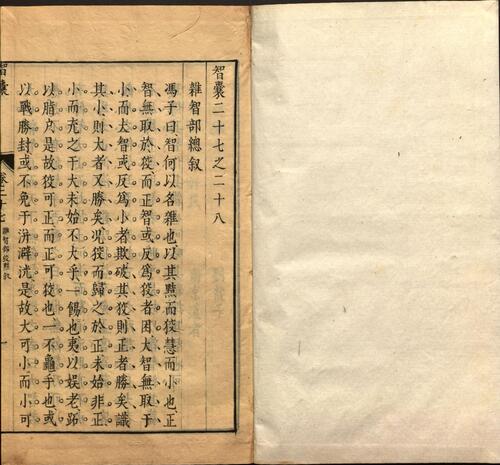 智囊二十七之二十八
雜智部總叙
馮子曰智何以名雜也以其黠而狡慧而小也正
智無取於狡而正智或反爲狡者困大智無取于
小而大智或反爲小者欺破其狡則正者勝矣識
其小則大者又勝矣况狡而歸之於正未始非正
小而充之于大未始不大乎一餳也夷以娱老跖
以脂户是故狡可正而正可狡也一不龜手也或
以戰勝封或不免于洴澼洸是故大可小而小可
智囊
卷二十七
雜智部總叙
一